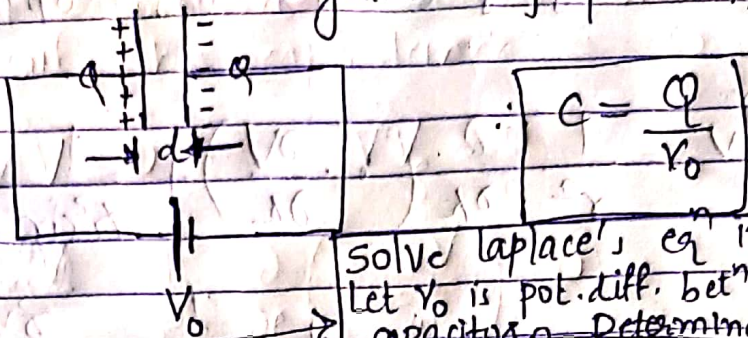 + + + + +
- - - - -
Q
Q
d
V₀
∴ C = Q / V₀
Solve Laplace's eqⁿ
Let V₀ is pot. diff. betⁿ
Determine